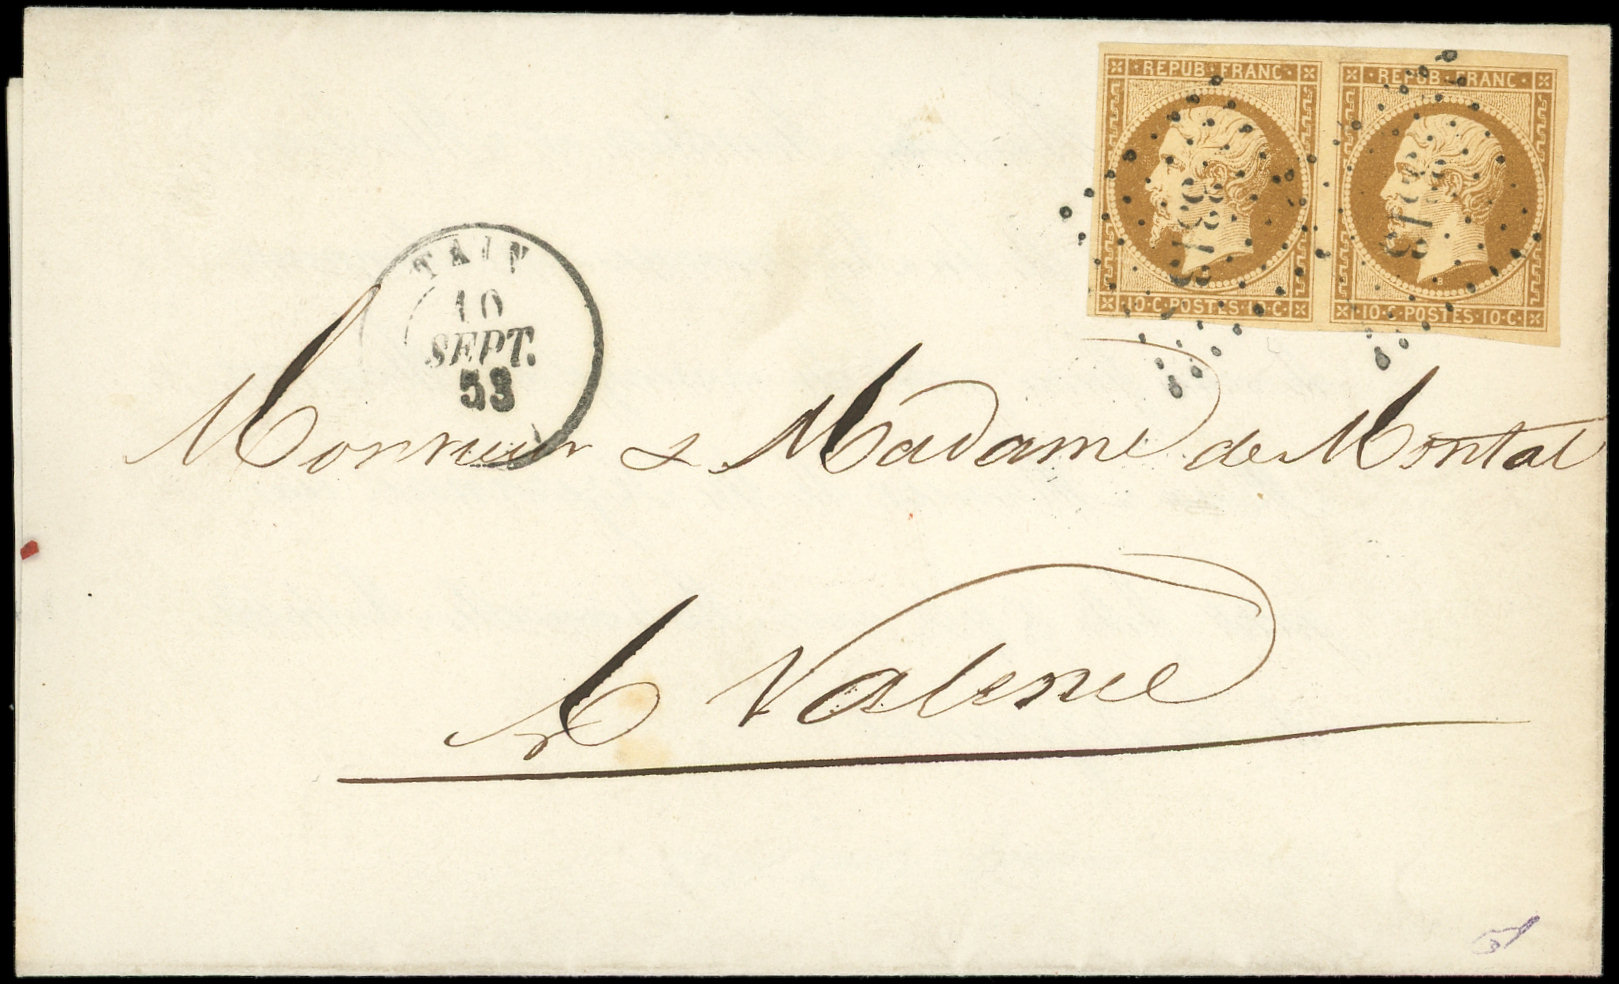 REPUB·FRANC· REPUB·FRANC·
10·C·POSTES·10·C· 10·C·POSTES·10·C·
TAIN
10
SEPT.
53
Monsieur & Madame de Montal
à Valence